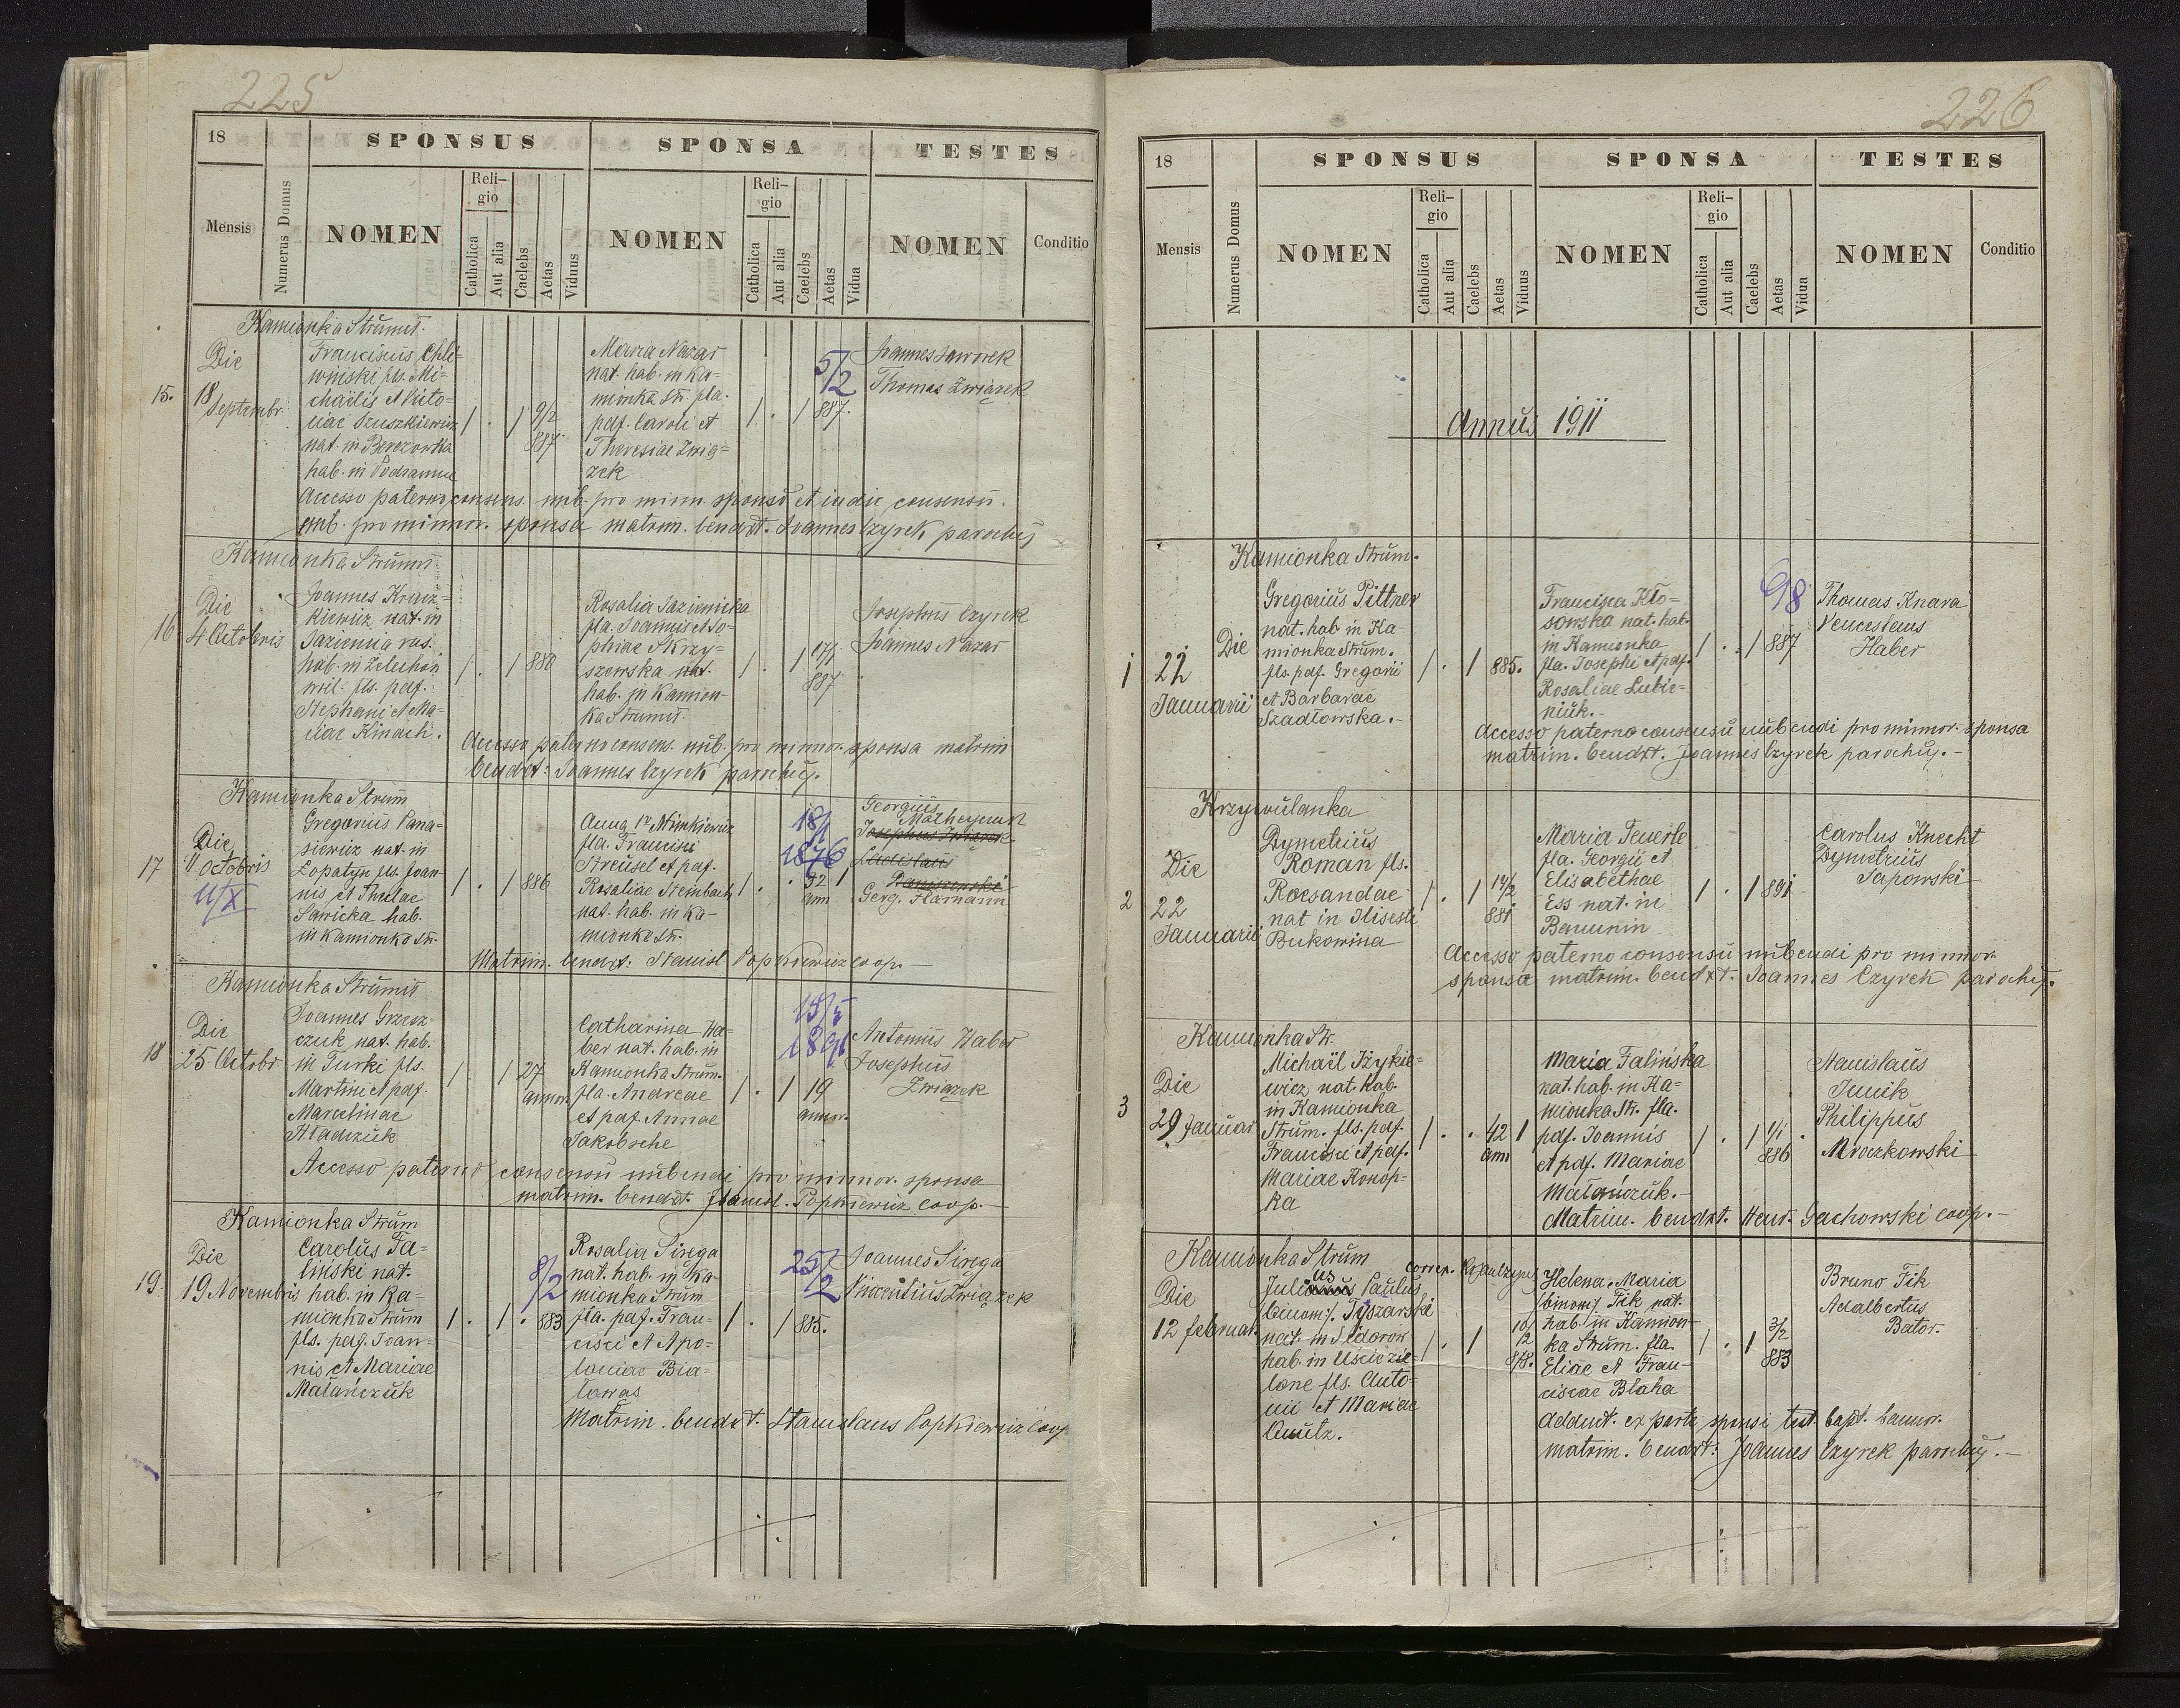 225
18
SPONSUS
SPONSA
TESTES
Mensis
Numerus Domus
NOMEN
Reli-
gio
Catholica
Aut alia
Caelebs
Aetas
Viduus
NOMEN
Reli-
gio
Catholica
Aut alia
Caelebs
Aetas
Vidua
NOMEN
Conditio
Kamionka Strumił.
15.
Die
18
Septembr.
Franciscus Chle-
wiński fls. Mi-
chaëlis et Anto-
niae Szuszkiewicz
nat. in Berezowka
hab. in Podzamcze
1 . 1 9/2
887
Maria Nazar
nat. hab. in Ka-
mionka Str. fla.
pdf. Caroli et
Theresiae Zwią-
zek
1 . 1 887.
5/2
Joannes Jaworek
Thomas Związek
Accesso paterno consens. nub. pro minn. sponso et iudic. consensu.
nub. pro minnor. sponsa matrim. benedxt. Joannes Czyrek parochus
Kamionka Strumił.
16
Die
4 Octobris
Joannes Krucz-
kiewicz nat. in
Jazienica rus.
hab. in Zelechów
wiel. fls. pdf.
Stephani et Ma-
riae Kindch.
1 . 1 880
Rosalia Jazienicka
fla. Joannis et So-
phiae Skrzy-
szowska nat.
hab. in Kamion-
ka Strumił.
1 . 1 17/1
887
Josephus Czyrek
Joannes Nazar
Accesso paterno consens. nub. pro minnor. sponsa matrim
bendxt: Joannes Czyrek parochus.
Kamionka Strum
17
Die
11 Octobris
11/X
Gregorius Pana-
siewicz nat. in
Łopatyn fls. Joan-
nis et Theclae
Sawicka hab.
in Kamionka Str.
1 . 1 886
Anna 1v. Minkiewicz
fla. Francisci
Streusel et pdf.
Rosaliae Stembach
nat. hab. in Ka-
mionka Str.
1 . . 32 1
ann
18/1
1876
Georgius
Josephus Związek
Ladislaus
Daniszewski
Gerg. Hamann
Matrim. bendxt: Stanisl Popkiewicz coop.
Kamionka Strumił
18
Die
25 Octobr
Joannes Grzesz-
czuk nat. hab.
in Turki fls.
Martini et pdf.
Marcelinae
Hladczuk
1 . 1 27
annor.
Catharina Ha-
ber nat. hab. in
Kamionka Strum.
fla. Andreae
et pdf. Annae
Jakobsche
1 . 1 19
annor.
15/5
1891
Antonius Haber
Josephus
Związek
Accesso paterno consensu nubendi pro minnor. sponsa
matrim. bendxt. Stanisl. Popkiewicz coop.-
Kamionka Strum
19.
Die
19 Novembris
Carolus Fa-
liński nat.
hab. in Ka-
mionka Strum
fls. pdf. Joan-
nis et Mariae
Małańczuk
1 . 1 . 883
8/2
Rosalia Sirega
nat. hab. in Ka-
mionka Strum
fla. pdf. Fran-
cisci et Apo-
loniae Bia-
łowąs
1 . 1 885.
25/2
Joannes Sirega
Vincentius Związek
Matrim. bendxt. Stanislaus Popkiewicz coop
226
18
SPONSUS
SPONSA
TESTES
Mensis
Numerus Domus
NOMEN
Reli-
gio
Catholica
Aut alia
Caelebs
Aetas
Viduus
NOMEN
Reli-
gio
Catholica
Aut alia
Caelebs
Aetas
Vidua
NOMEN
Conditio
Annus 1911
Kamionka Strum.
1
Die
22
Januarii
Gregorius Pittner
nat. hab. in Ka-
mionka Strum.
fls. pdf. Gregorii
et Barbarae
Szadłowska.-
1 . 1 885.
Francisca Kło-
sowska nat. hab.
in Kamionka
fla. Josephi et pdf.
Rosaliae Lubie-
niuk.-
1 . . 1 887
Thomas Knara
Venceslaus
Haber
Accesso paterno consensu nubendi pro minnor. sponsa
matrim. bendxt. Joannes Czyrek parochus.-
Krzywulanka
2
Die
22
Januarii
Dymetrius
Roman fls.
Roesandae
nat in Ilisestie
Bukowina
1 . 1 14/2
881
Maria Feuerle
fla. Georgii et
Elisabethae
Ess nat. in
Baumin
1 . 1 891
Carolus Knecht
Dymetrius
Sapowski
Accesso paterno consensu nubendi pro minnor.
sponsa matrim. bendxt. Joannes Czyrek parochus.
Kamionka Str.
3
Die
29 Januar
Michaël Iżykie-
wicz nat. hab.
in Kamionka
Strum. fls. pdf.
Francisci et pdf.
Mariae Konop-
ka
1 . . 42 1
ann
Maria Falińska
nat. hab. in Ka-
mionka Str. fla.
pdf. Joannis
et pdf. Mariae
Małańczuk.-
1 . 1 1/1 .
886
Stanislaus
Philippus
Mroczkowski
Matrim. bendxt. Henr. Gachowski coop.-
Kamionka Strum
Die
12 februar.
Julius Paulus
(binom). Tyszarski
nat. in Sidorów
hab. in Uście zie-
lone fls. Anto-
nii et Mariae
1 . 1 10/12
878.
Helena, Maria
(binom). Fik nat.
hab. in Kamion-
ka Strum. fla.
Eliae et Fran-
ciscae Blaha
1 . 1 3/2
883
Bruno Fik
Adalbertus
Bator.
Adduct. ex parte sponsi test. bapt. bannor.
matrim. bendxt: Joannes Czyrek parochus.-